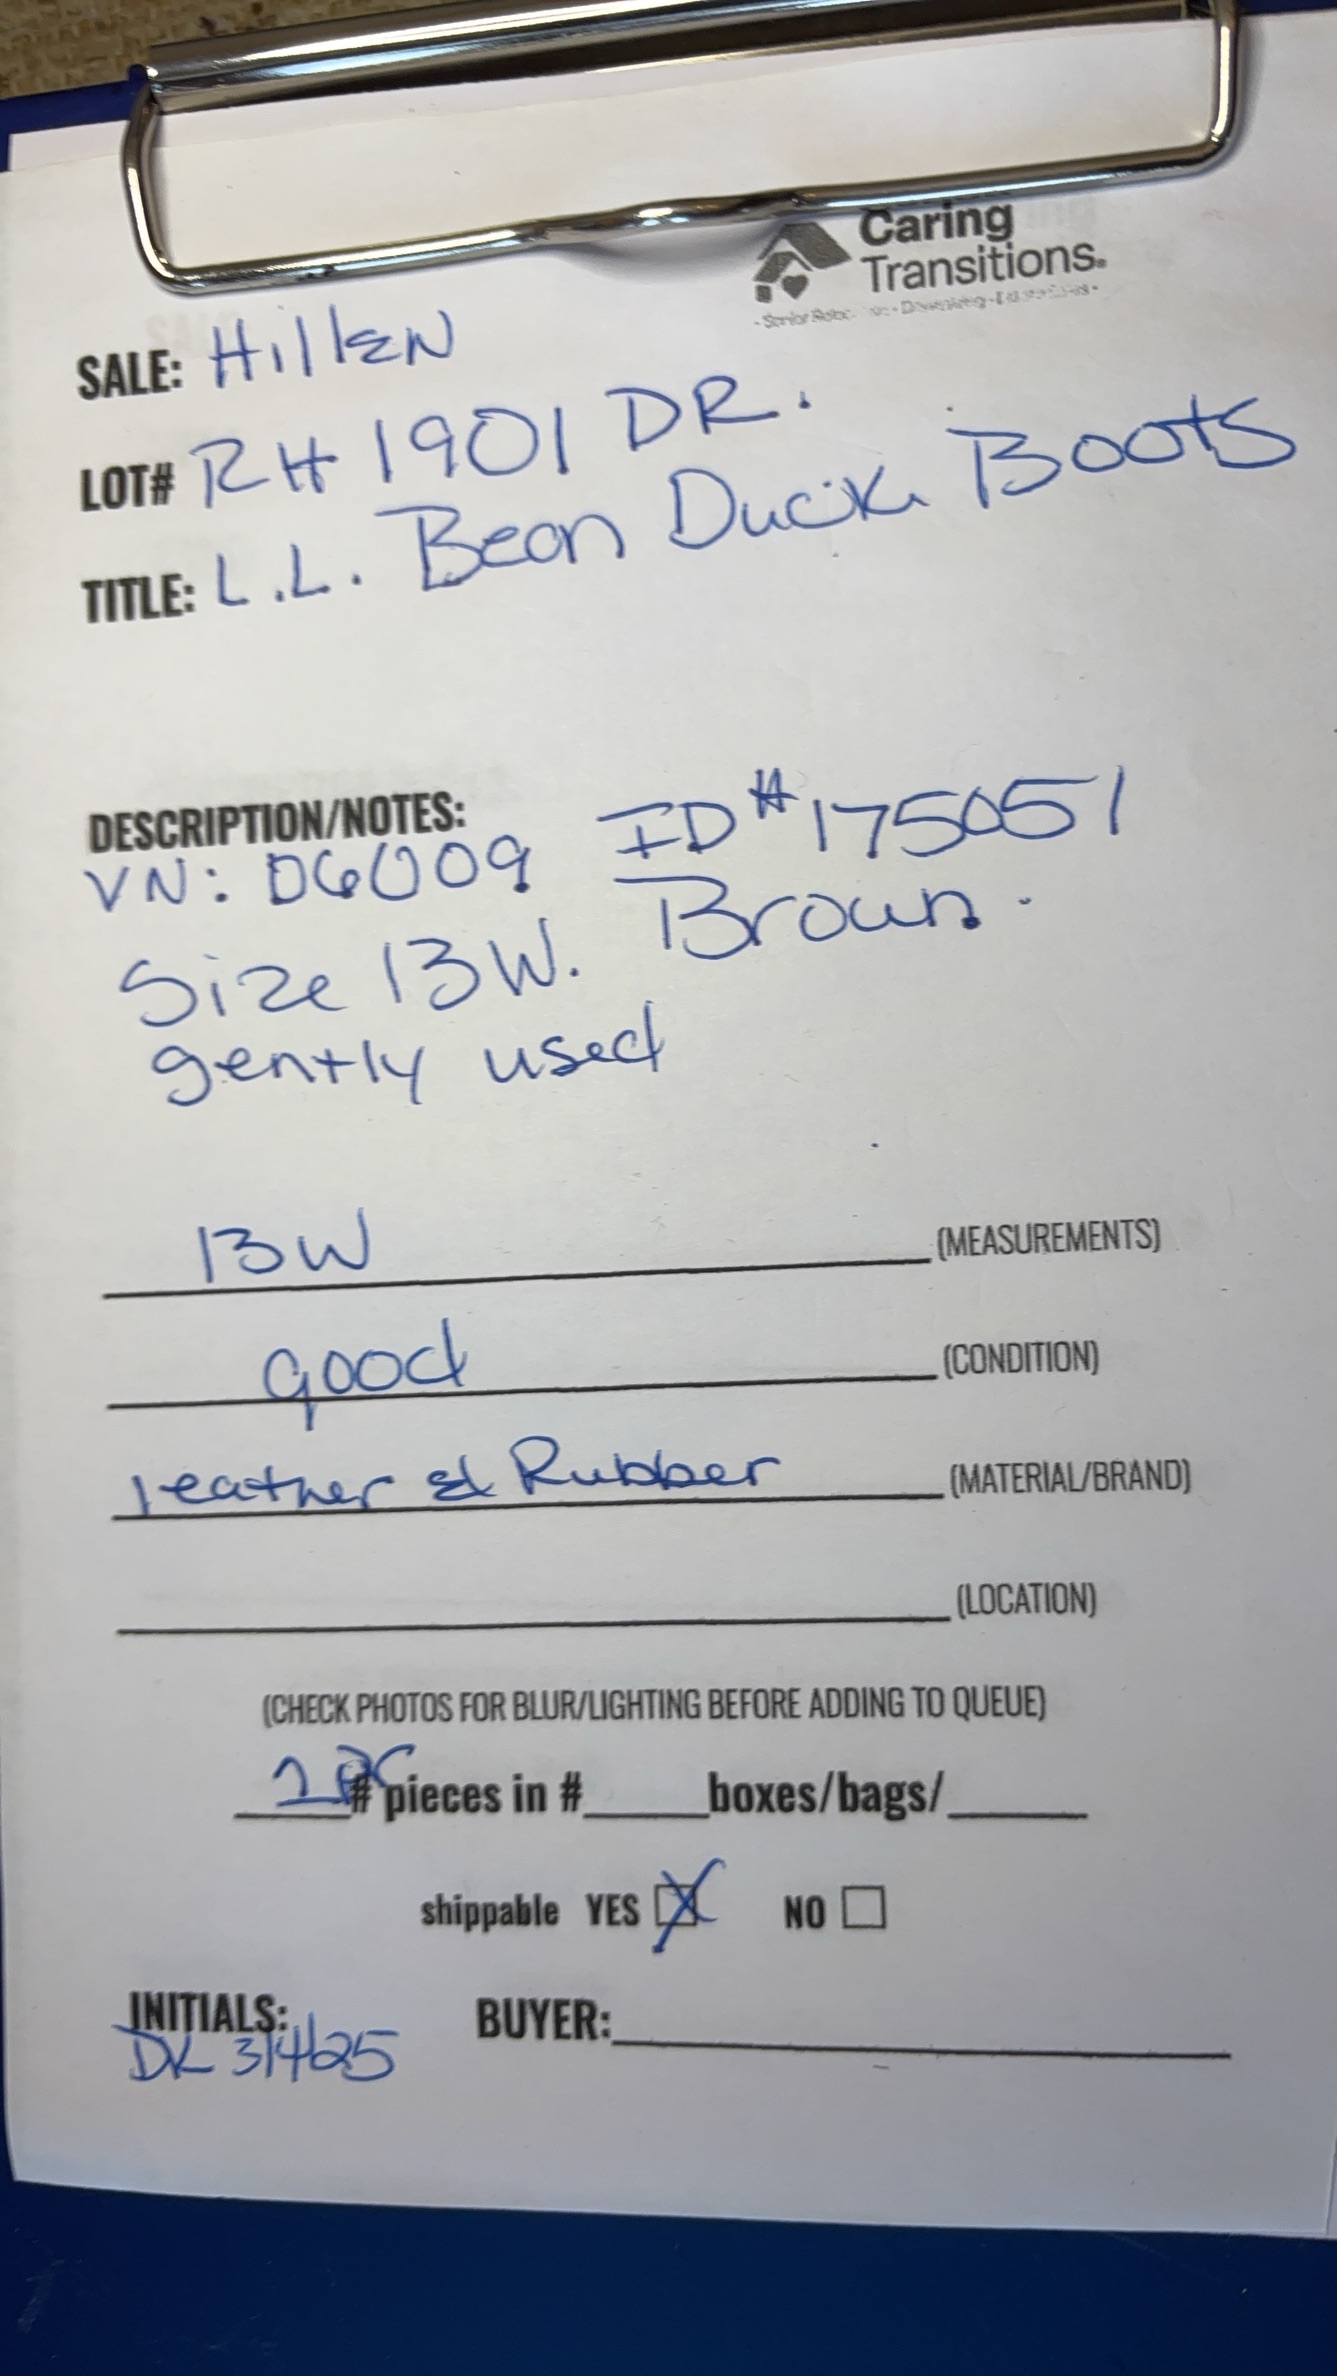 Caring
Transitions.
SALE: Hillen
LOT# RH 1901 DR.
TITLE: L.L. Bean Duck Boots
DESCRIPTION/NOTES:
VN: 06009 ID# 175051
Size 13 W. Brown.
gently used
13 W (MEASUREMENTS)
good (CONDITION)
Leather & Rubber (MATERIAL/BRAND)
(LOCATION)
(CHECK PHOTOS FOR BLUR/LIGHTING BEFORE ADDING TO QUEUE)
# pieces in # boxes/bags/
shippable YES X NO
INITIALS: BUYER:
DK 3/4/25